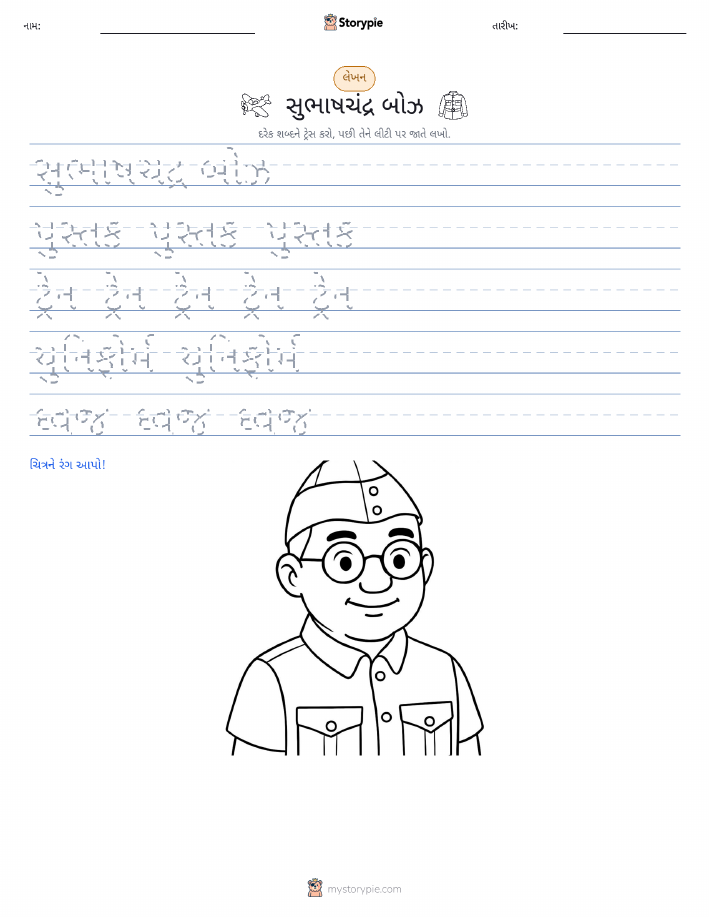 નામ:
Storypie
તારીખ:
લેખન
સુભાષચંદ્ર બોઝ
દરેક શબ્દને ટ્રેસ કરો, પછી તેને લીટી પર જાતે લખો.
સુભાષચંદ્ર બોઝ
પુસ્તક પુસ્તક પુસ્તક
ટ્રેન ટ્રેન ટ્રેન ટ્રેન ટ્રેન
યુનિફોર્મ યુનિફોર્મ
ધ્વજ ધ્વજ ધ્વજ
ચિત્રને રંગ આપો!
mystorypie.com